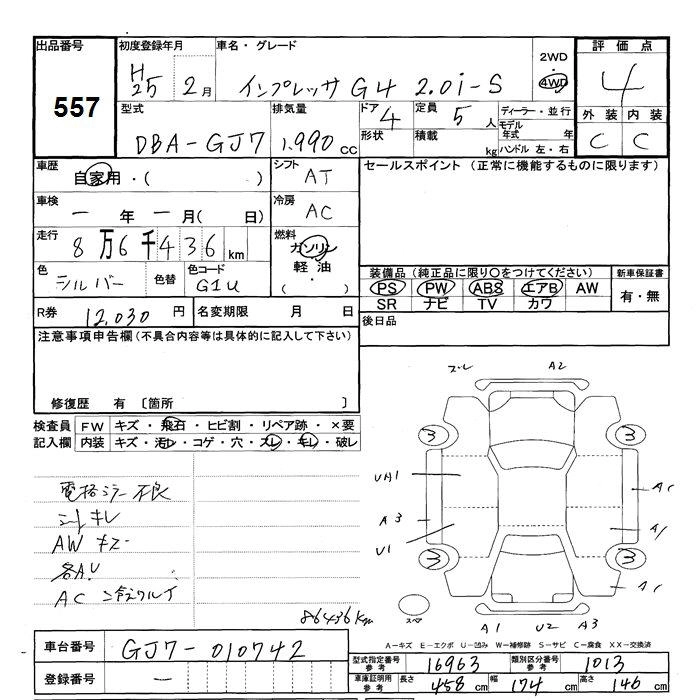 出品番号
557
初度登録年月
H25 2月
車名・グレード
インプレッサ G4 2.0i-S
2WD
4WD
評価点
4
外装 内装
C C
型式
DBA-GJ7
排気量
1,990 cc
ドア
4
形状
定員
5人
積載
kg
ディーラー・並行
モデル
年式 年
ハンドル 左・右
車歴
自家用・( )
シフト
AT
セールスポイント (正常に機能するものに限ります)
車検
一年一月( 日)
冷房
AC
走行
8万6千436km
燃料
ガソリン
軽油
( ・ )
色
シルバー
色替
色コード
G1U
装備品 (純正品に限り〇をつけてください)
PS PW ABS エアB AW
SR ナビ TV カワ
新車保証書
有・無
R券
12,030 円
名変期限 月 日
後日品
注意事項申告欄(不具合内容等は具体的に記入して下さい)
修復歴 有 〔箇所 〕
検査員
記入欄
FW キズ・飛石・ヒビ割・リペア跡・×要
内装 キズ・汚レ・コゲ・穴・スレ・キレ・破レ
電格ミラー不良
シートキレ
AW キズ
各AU
AC
86436km
ズレ A2
3 3
UA1
A3
U1
3 3
スペア
A1 U2 A3
A-キズ E-エクボ U-凹み W-補修跡 S-サビ C-腐食 XX-交換済
車台番号
GJ7-010742
登録番号
一
型式指定番号
参考
16963
類別区分番号
参考
1013
車庫証明用
参考
長さ 458 cm
幅 174 cm
高さ 146 cm